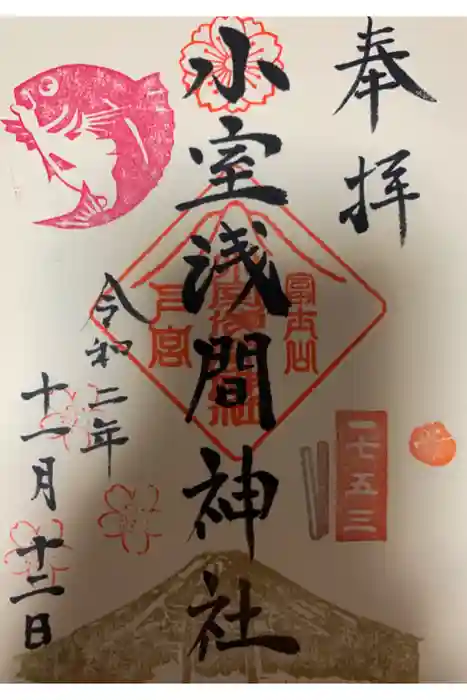 奉拝
小室浅間神社
富士山
下宮
一七五三
令和二年
十一月十二日